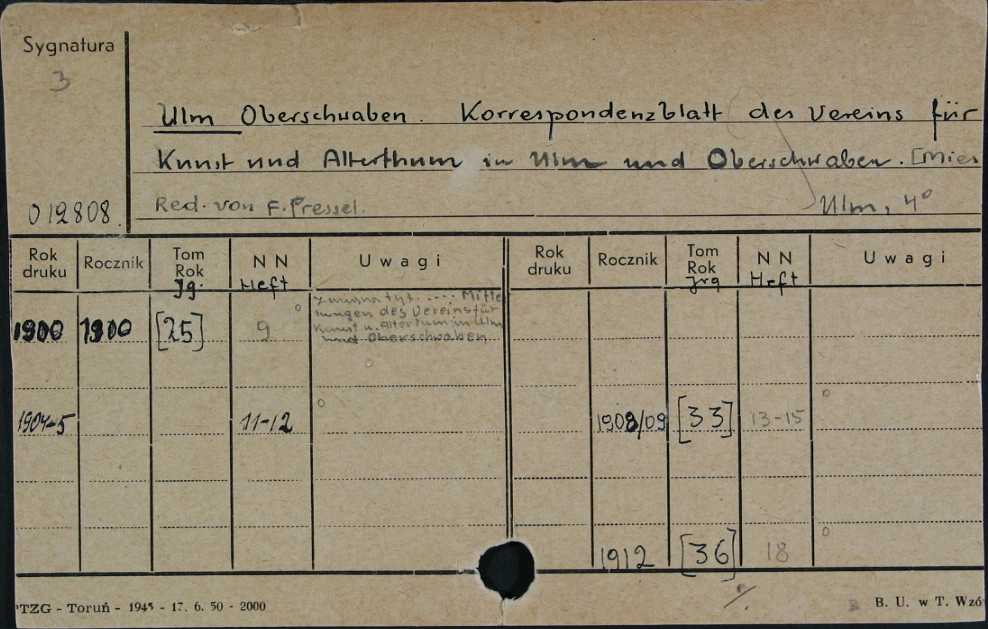 Sygnatura
3
Ulm Oberschwaben. Korrespondenzblatt des Vereins für
Kunst und Alterthum in Ulm und Oberschwaben. [Mies
012808.
Red. von F. Pressel.
Ulm, 4°
Rok druku Rocznik Tom Rok Jg. NN Heft Uwagi Rok druku Rocznik Tom Rok Jrg NN Heft Uwagi
1900 1900 [25] 9 tyt. .... Mittei
lungen des Vereins für
Kunst u. Altertum in Ulm
und Oberschwaben
1904-5 11-12 1908/09 [33] 13-15
1912 [36] 18
PTZG - Toruń - 1945 - 17. 6. 50 - 2000
B. U. w T. Wzó